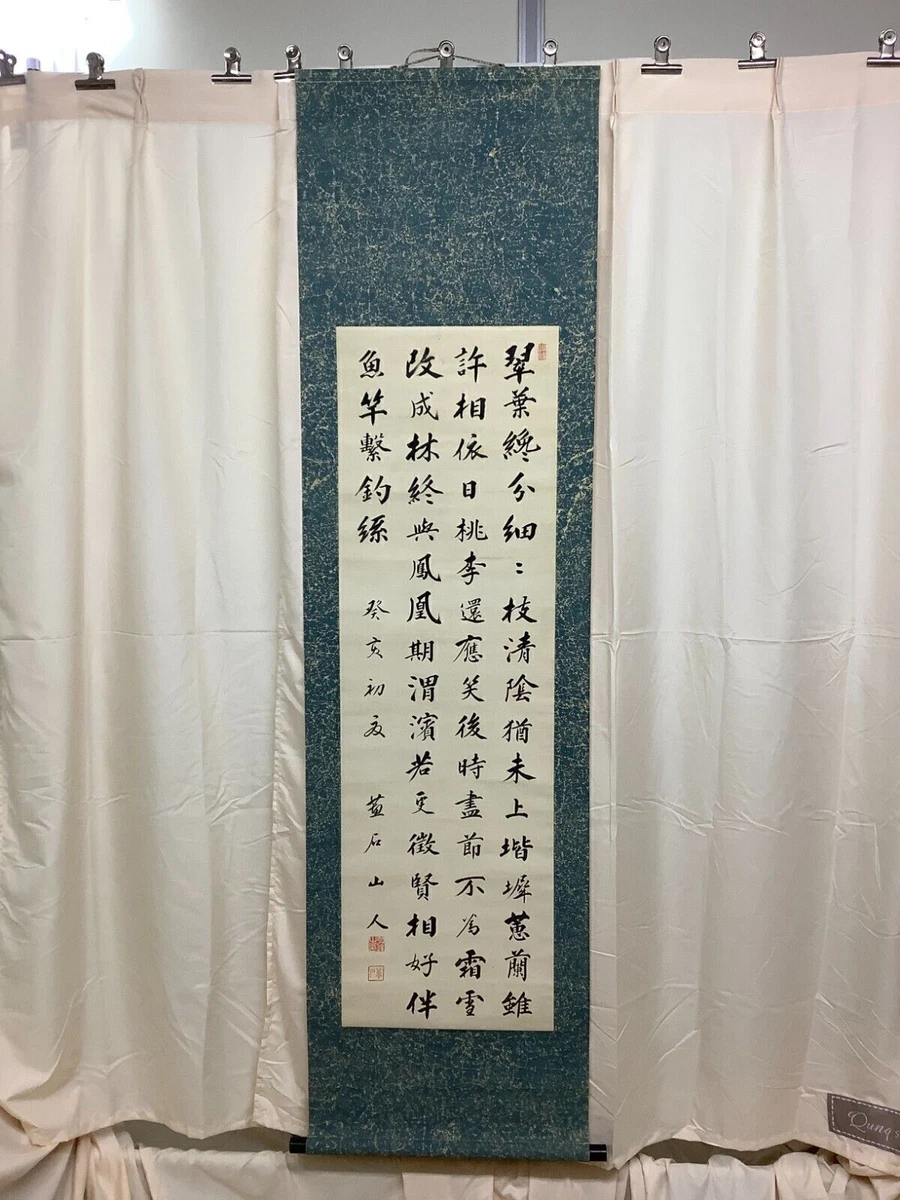 翠葉纔分細〻枝清陰猶未上堦墀蕙蘭雖
許相依日桃李還應笑後時盡節不為霜雪
改成林終與鳳凰期渭濱若更徵賢相好伴
魚竿繫釣絲 癸亥初夏 石山人